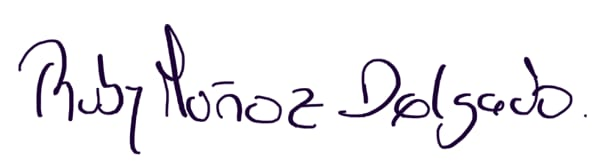 Ruby Muñoz Delgado.